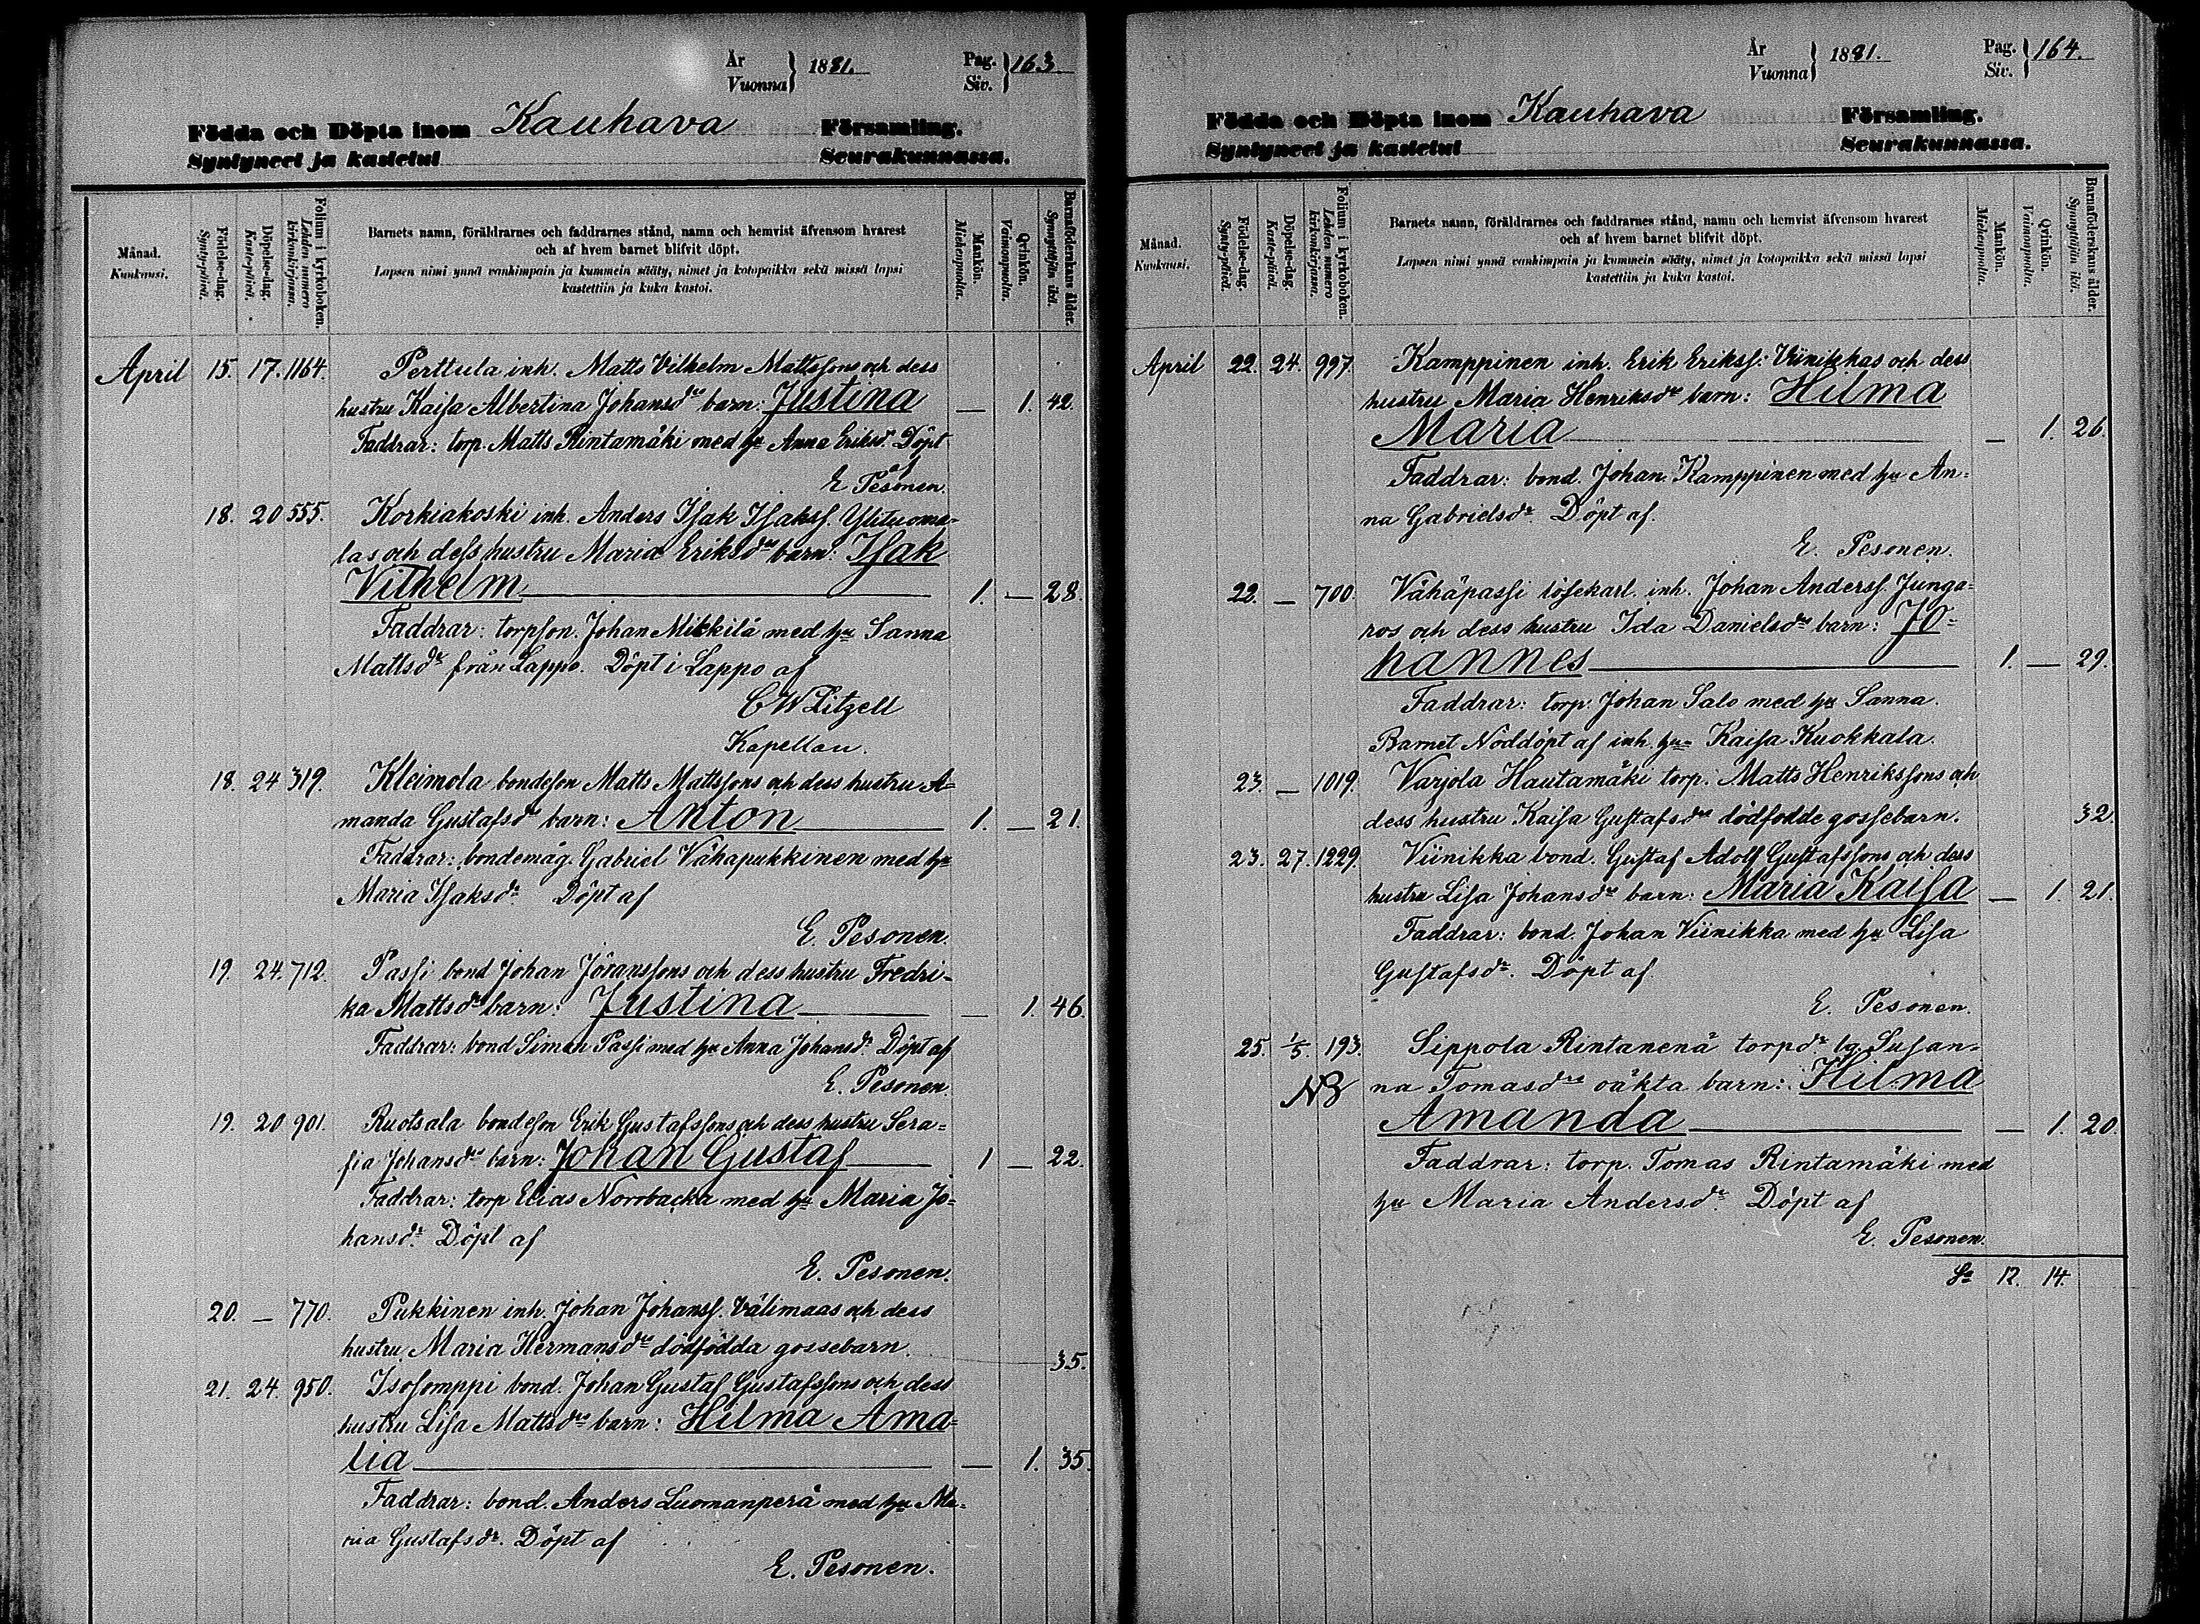 År
Vuonna } 1881. Pag.
Siv. } 163.
Födda och Döpta inom Kauhava Församling.
Syntyneet ja kastetut Seurakunnassa.
Månad.
Kuukausi.
Födelse-dag.
Synty-päivä.
Döpelse-dag.
Kaste-päivä.
Folium i kyrkoboken.
Lehden numero
kirkonkirjassa.
Barnets namn, föräldrarnes och faddrarnes stånd, namn och hemvist äfvensom hvarest
och af hvem barnet blifvit döpt.
Lapsen nimi ynnä vanhimpain ja kummein sääty, nimet ja kotopaikka sekä missä lapsi
kastettiin ja kuka kastoi.
Mankön.
Miehenpuolta.
Qvinkön.
Vaimonpuolta.
Barnaföderskans ålder.
Synnyttäjän ikä.
April 15. 17. 1164. Perttula inh. Matts Vilhelm Mattssons och dess
hustru Kaisa Albertina Johansdrs barn: Justina — 1. 42.
Faddrar: torp. Matts Rintamäki med hu Anna Eriksdr. Döpt
af
E Pesonen.
18. 20 555. Korkiakoski inh. Anders Isak Isakss. Ylituoma-
las och dess hustru Maria Eriksdrs barn: Isak
Vilhelm 1. — 28.
Faddrar: torpson. Johan Mikkilä med hu Sanna
Mattsdr från Lappo. Döpt i Lappo af
C W Litzell
Kapellan.
18. 24 319. Kleimola bondeson Matts Mattssons och dess hustru A-
manda Gustafsdrs barn: Anton 1. — 21.
Faddrar: bondemåg. Gabriel Vähäpukkinen med hu
Maria Isaksdr Döpt af
E. Pesonen.
19. 24. 712. Passi bond Johan Jöranssons och dess hustru Fredri-
ka Mattsdrs barn: Justina — 1. 46.
Faddrar: bond Simon Passi med hu Anna Johansdr. Döpt af
E. Pesonen.
19. 20 901. Ruotsala bondeson Erik Gustafssons och dess hustru Sera-
fia Johansdrs barn: Johan Gustaf 1 — 22.
Faddrar: torp Elias Norrbacka med hu Maria Jo-
hansdr. Döpt af
E. Pesonen.
20. — 770. Pukkinen inh. Johan Johanss. Välimaas och dess
hustru Maria Hermansdrs dödfödda gossebarn. 35.
21. 24. 950. Isosomppi bond. Johan Gustaf Gustafssons och dess
hustru Lisa Mattsdrs barn: Hilma Ama-
lia — 1. 35.
Faddrar: bond. Anders Luomanperä med hu Ma-
ria Gustafsdr. Döpt af
E. Pesonen.
År
Vuonna } 1881. Pag.
Siv. } 164.
Födda och Döpta inom Kauhava Församling.
Syntyneet ja kastetut Seurakunnassa.
Månad.
Kuukausi.
Födelse-dag.
Synty-päivä.
Döpelse-dag.
Kaste-päivä.
Folium i kyrkoboken.
Lehden numero
kirkonkirjassa.
Barnets namn, föräldrarnes och faddrarnes stånd, namn och hemvist äfvensom hvarest
och af hvem barnet blifvit döpt.
Lapsen nimi ynnä vanhimpain ja kummein sääty, nimet ja kotopaikka sekä missä lapsi
kastettiin ja kuka kastoi.
Mankön.
Miehenpuolta.
Qvinkön.
Vaimonpuolta.
Barnaföderskans ålder.
Synnyttäjän ikä.
April 22. 24. 997. Kamppinen inh. Erik Erikss: Viinikkas och dess
hustru Maria Henriksdrs barn: Hilma
Maria — 1. 26.
Faddrar: bond. Johan Kamppinen med hu An-
na Gabrielsdr. Döpt af.
E. Pesonen.
22. — 700. Vähäpassi lösekarl. inh. Johan Anderss. Junga-
ros och dess hustru Ida Danielsdrs barn: Jo-
hannes 1. — 29.
Faddrar: torp. Johan Salo med hu Sanna.
Barnet Nöddöpt af inh. hu Kaisa Kuokkala.
23. — 1019. Varjola Hautamäki torp. Matts Henrikssons och
dess hustru Kaisa Gustafsdrs dödfödde gossebarn. 32.
23. 27. 1229. Viinikka bond. Gustaf Adolf Gustafssons och dess
hustru Lisa Johansdrs barn: Maria Kaisa — 1. 21.
Faddrar: bond. Johan Viinikka med hu Lisa
Gustafsdr. Döpt af.
E. Pesonen.
25. 1/5. 193. Sippola Rintanenä torpdr lg. Susan-
NB na Tomasdrs oäkta barn: Hilma
Amanda — 1. 20.
Faddrar: torp. Tomas Rintamäki med
hu Maria Andersdr. Döpt af
E. Pesonen.
Sa 12. 14.